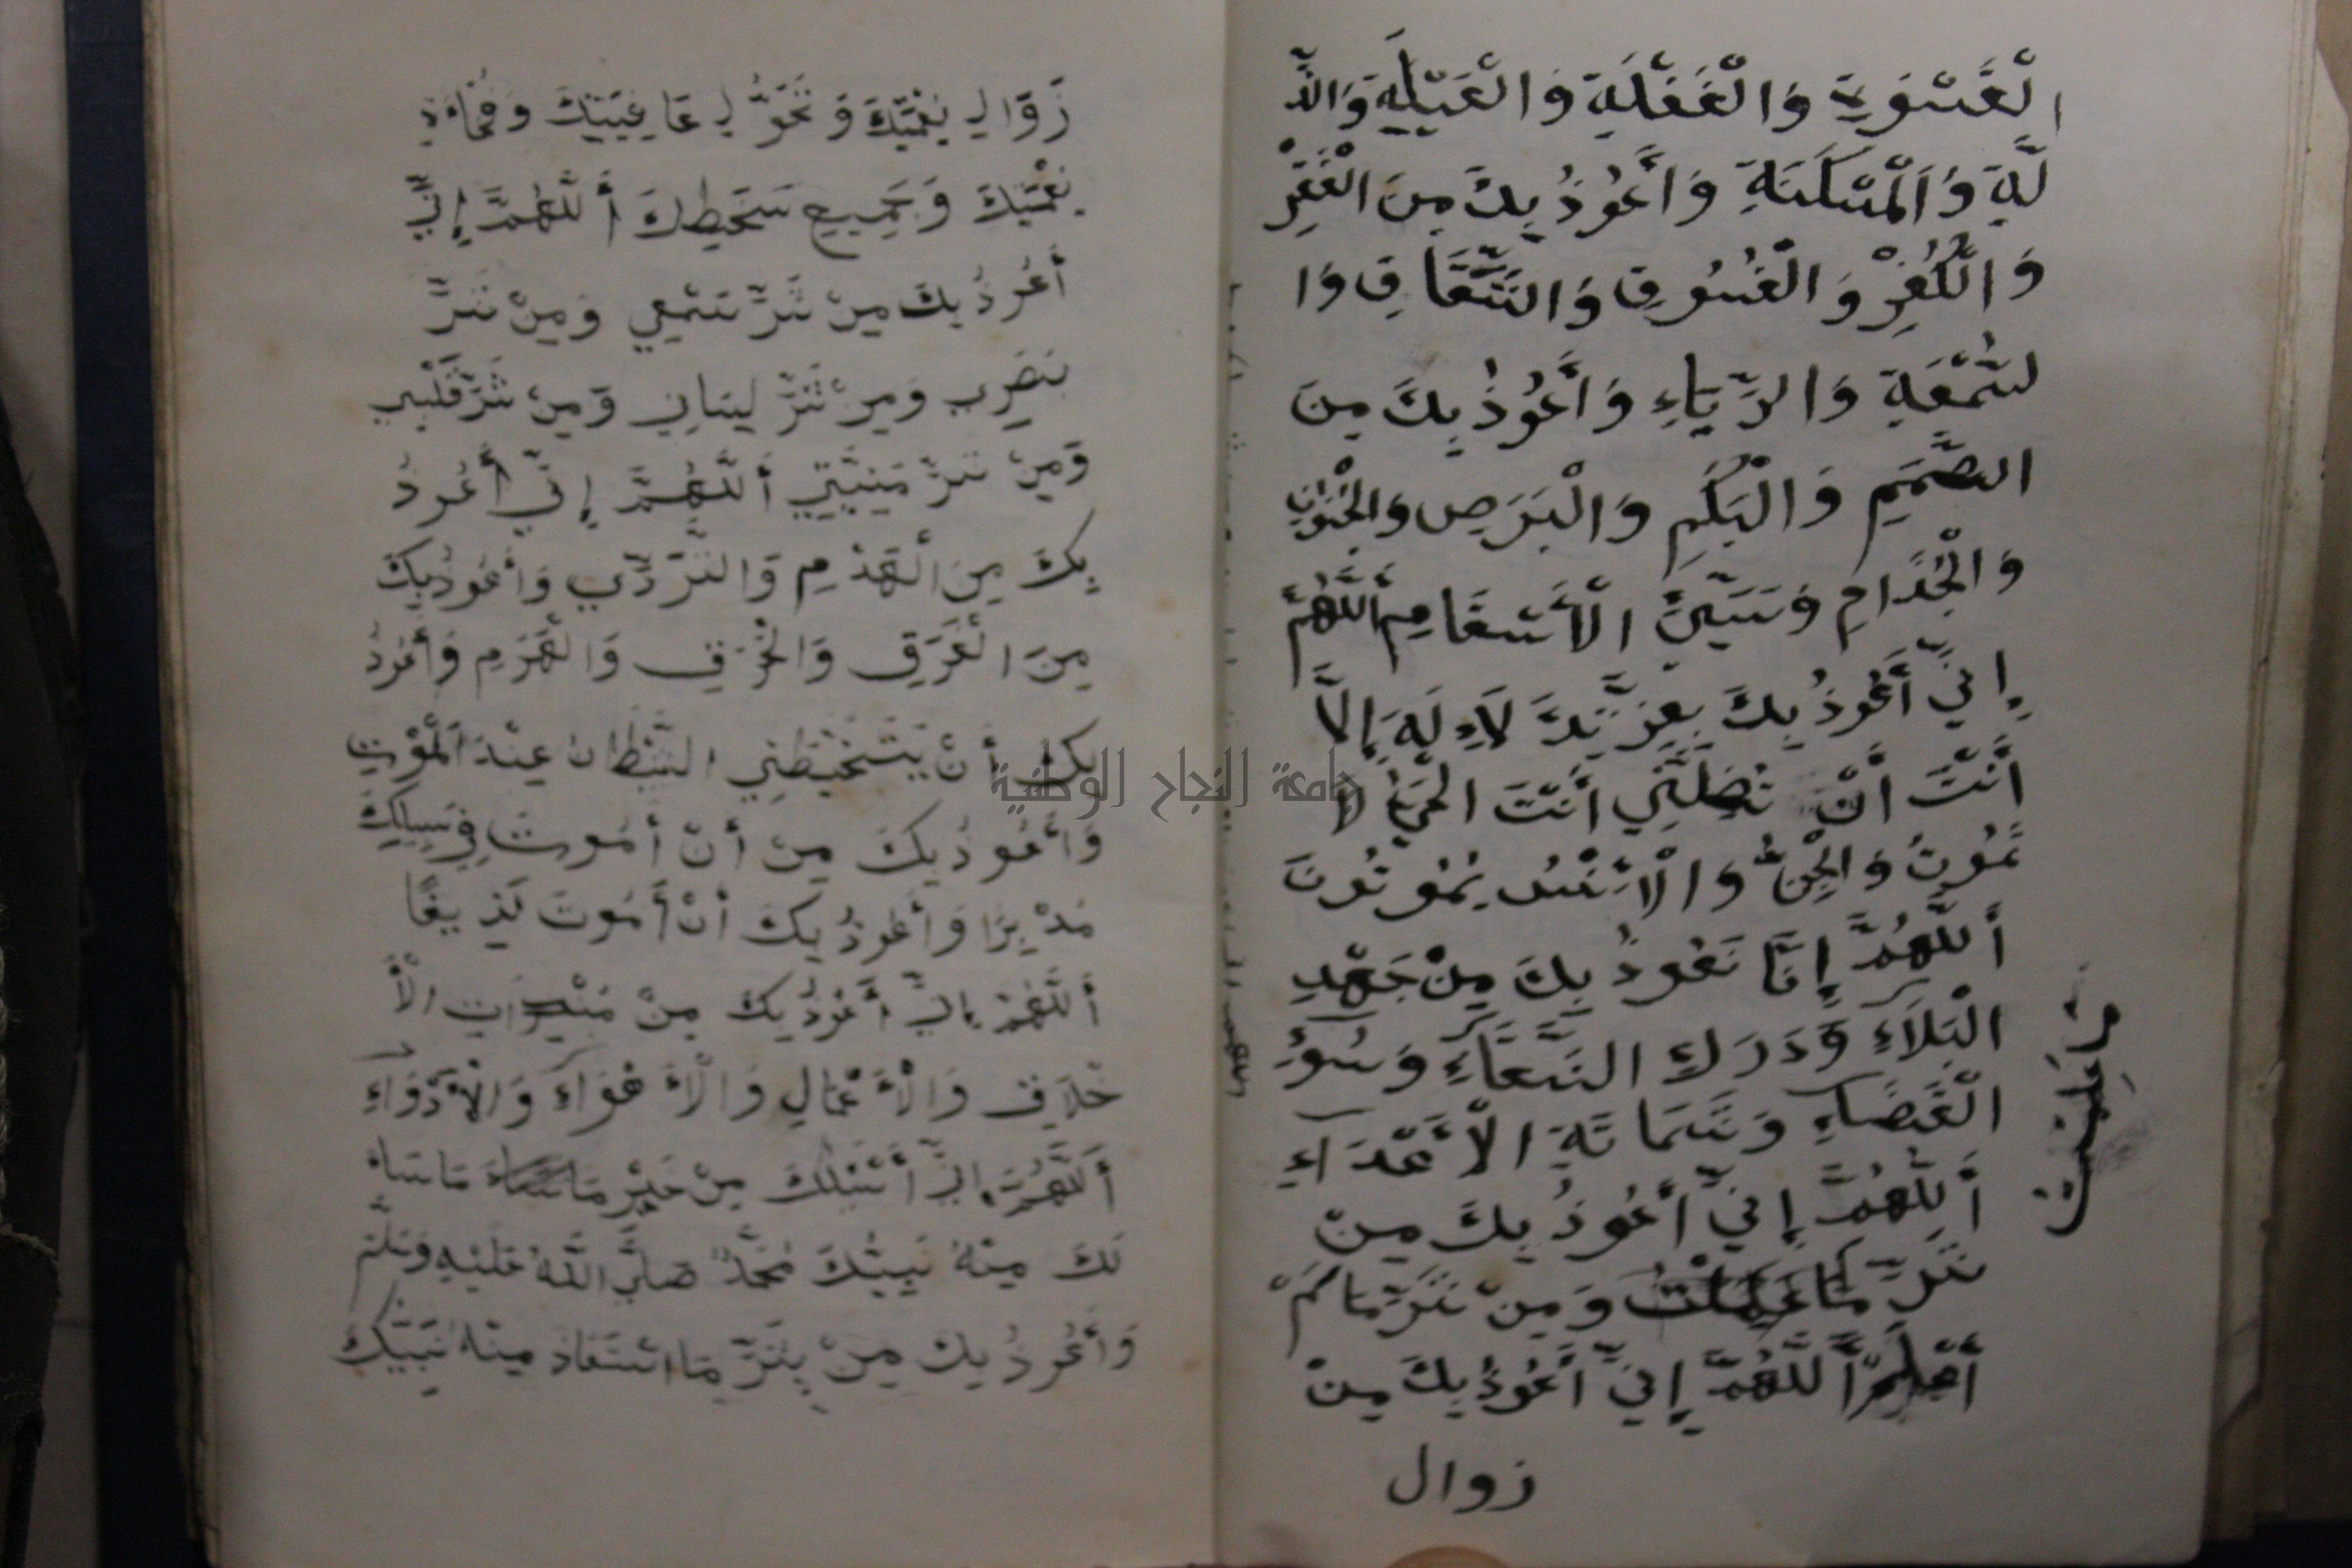 الْقَسْوَةِ وَالْغَفْلَةِ وَالْعَيْلَةِ وَالذِّ
لَّةِ وَالْمَسْكَنَةِ وَأَعُوذُ بِكَ مِنَ الْفَقْرِ
وَالْكُفْرِ وَالْفُسُوقِ وَالشِّقَاقِ وَا
لسُّمْعَةِ وَالرِّيَاءِ وَأَعُوذُ بِكَ مِنَ
الصَّمَمِ وَالْبَكَمِ وَالْبَرَصِ وَالْجُنُونِ
وَالْجُذَامِ وَسَيِّئِ الْأَسْقَامِ أَللَّهُمَّ
إِنِّي أَعُوذُ بِكَ بِعِزَّتِكَ لَاإِلَهَ إِلَّا
أَنْتَ أَنْ تُضِلَّنِي أَنْتَ الْحَيُّ لَا
تَمُوتُ وَالْجِنُّ وَالْإِنْسُ يَمُوتُونَ
أَللَّهُمَّ إِنَّا نَعُوذُ بِكَ مِنْ جَهْدِ
الْبَلَاءِ وَدَرَكِ الشَّقَاءِ وَسُوءِ
الْقَضَاءِ وَشَمَاتَةِ الْأَعْدَاءِ
أَللَّهُمَّ إِنِّي أَعُوذُ بِكَ مِنْ
شَرِّ مَا عَمِلْتُ وَمِنْ شَرِّ مَا لَمْ
أَعْلَمْ أَللَّهُمَّ إِنِّي أَعُوذُ بِكَ مِنْ
زوال
مَا عَلِمْتُ
زَوَالِ نِعْمَتِكَ وَتَحَوُّلِ عَافِيَتِكَ وَفُجَاءَةِ
نِقْمَتِكَ وَجَمِيعِ سَخَطِكَ أَللَّهُمَّ إِنِّي
أَعُوذُ بِكَ مِنْ شَرِّ سَمْعِي وَمِنْ شَرِّ
بَصَرِي وَمِنْ شَرِّ لِسَانِي وَمِنْ شَرِّ قَلْبِي
وَمِنْ شَرِّ مَنِيَّتِي أَللَّهُمَّ إِنِّي أَعُوذُ
بِكَ مِنَ الْهَدْمِ وَالتَّرَدِّي وَأَعُوذُ بِكَ
مِنَ الْغَرَقِ وَالْحَرَقِ وَالْهَرَمِ وَأَعُوذُ
بِكَ أَنْ يَتَخَبَّطَنِي الشَّيْطَانُ عِنْدَ الْمَوْتِ
وَأَعُوذُ بِكَ مِنْ أَنْ أَمُوتَ فِي سَبِيلِكَ
مُدْبِرًا وَأَعُوذُ بِكَ أَنْ أَمُوتَ لَدِيغًا
أَللَّهُمَّ إِنِّي أَعُوذُ بِكَ مِنْ مُنْكَرَاتِ الْأَ
خْلَاقِ وَالْأَعْمَالِ وَالْأَهْوَاءِ وَالْأَدْوَاءِ
أَللَّهُمَّ إِنِّي أَسْئَلُكَ مِنْ خَيْرِ مَا سَأَ
لَكَ مِنْهُ نَبِيُّكَ مُحَمَّدٌ صَلَّى اللَّهُ عَلَيْهِ وَسَلَّمَ
وَأَعُوذُ بِكَ مِنْ شَرِّ مَا اسْتَعَاذَ مِنْهُ نَبِيُّكَ
جامعة النجاح الوطنية